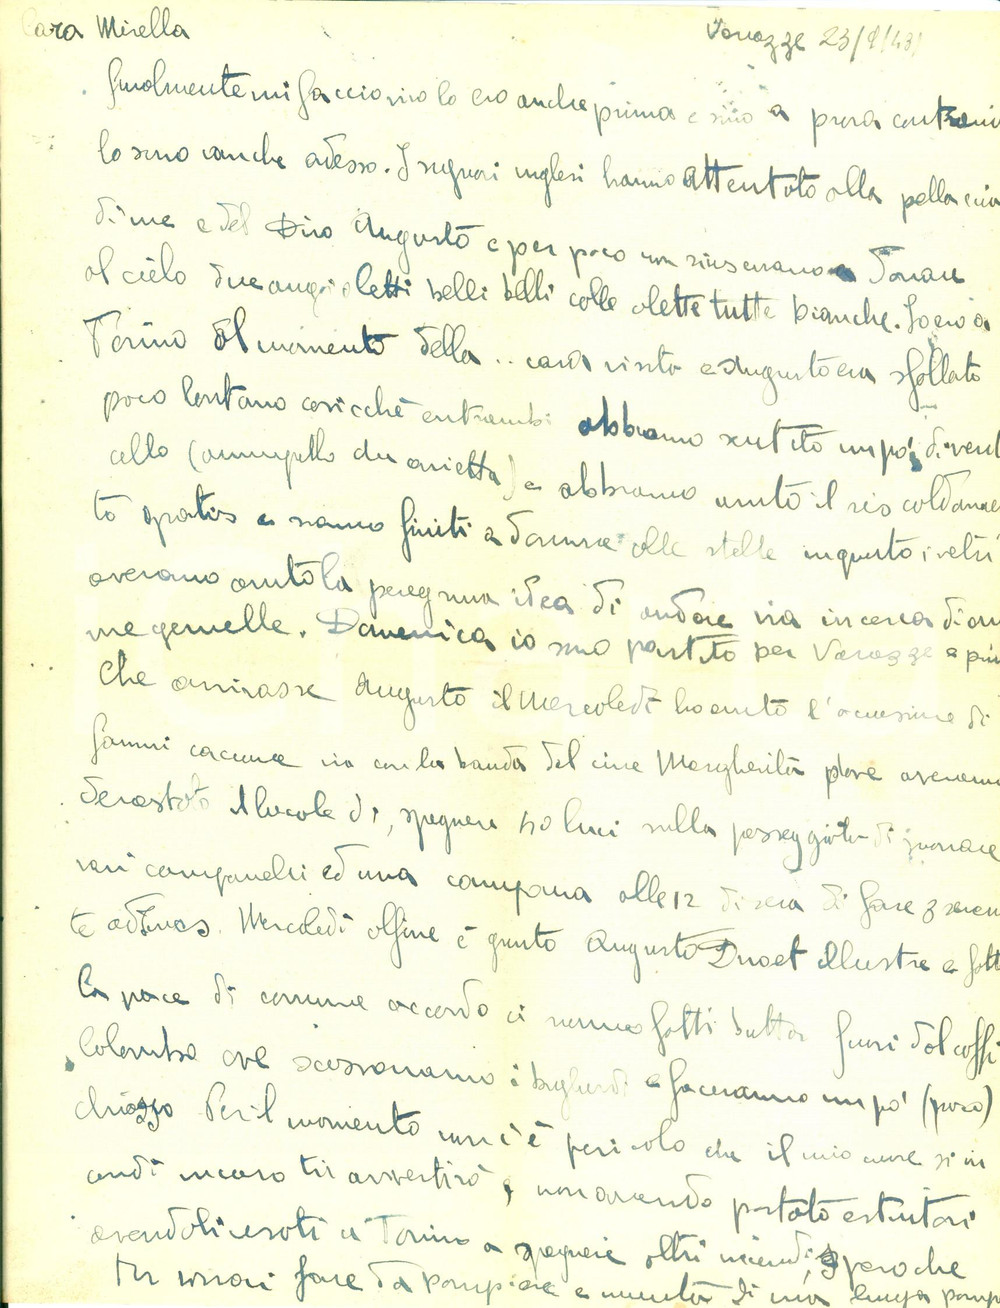 Cara Mirella
Varazze 23/8/43
Finalmente mi faccio vivo lo ero anche prima e sino a prova contraria
lo sono anche adesso. I signori inglesi hanno attentato alla pellaccia
di me e del Divo Augusto e per poco non riuscivano a donare
al cielo due angioletti belli belli colle alette tutte bianche. Io ero a
Torino al momento della .. cara visita e Augusto era sfollato
poco lontano cosicchè entrambi abbiamo sentito un po' di vent
cello (ammappello che arietta) e abbiamo avuto il riscaldamen
to gratis e siamo finiti a dormire alle stelle in quanto i vetri
avevano avuto la peregrina idea di andare via in cerca di ani
me gemelle. Domenica io sono partito per Varazze e prima
che arrivasse Augusto il Mercoledì ho avuto l'occasione di
farmi cacciare via con la banda dal cine Margherita dove avevamo
devastato il locale di, spegnere 40 luci sulla passeggiata di suonare
vari campanelli ed una campana alle 12 di sera di fare 3 serena
te ad Ines. Mercoledì alfine è giunto Augusto Druet illustre e fatta
la pace di comune accordo ci siamo fatti buttar fuori dal caffè
Colombo ove scassavamo i bigliardi e facevamo un po' (poco)
chiasso Per il momento non c'è pericolo che il mio cuore si in
cendi in caso ti avvertirò, non avendo portato estintori
avendoli usati a Torino a spegnere altri incendi, perchè
tu possa fare da pompiere e munita di una lunga pompa